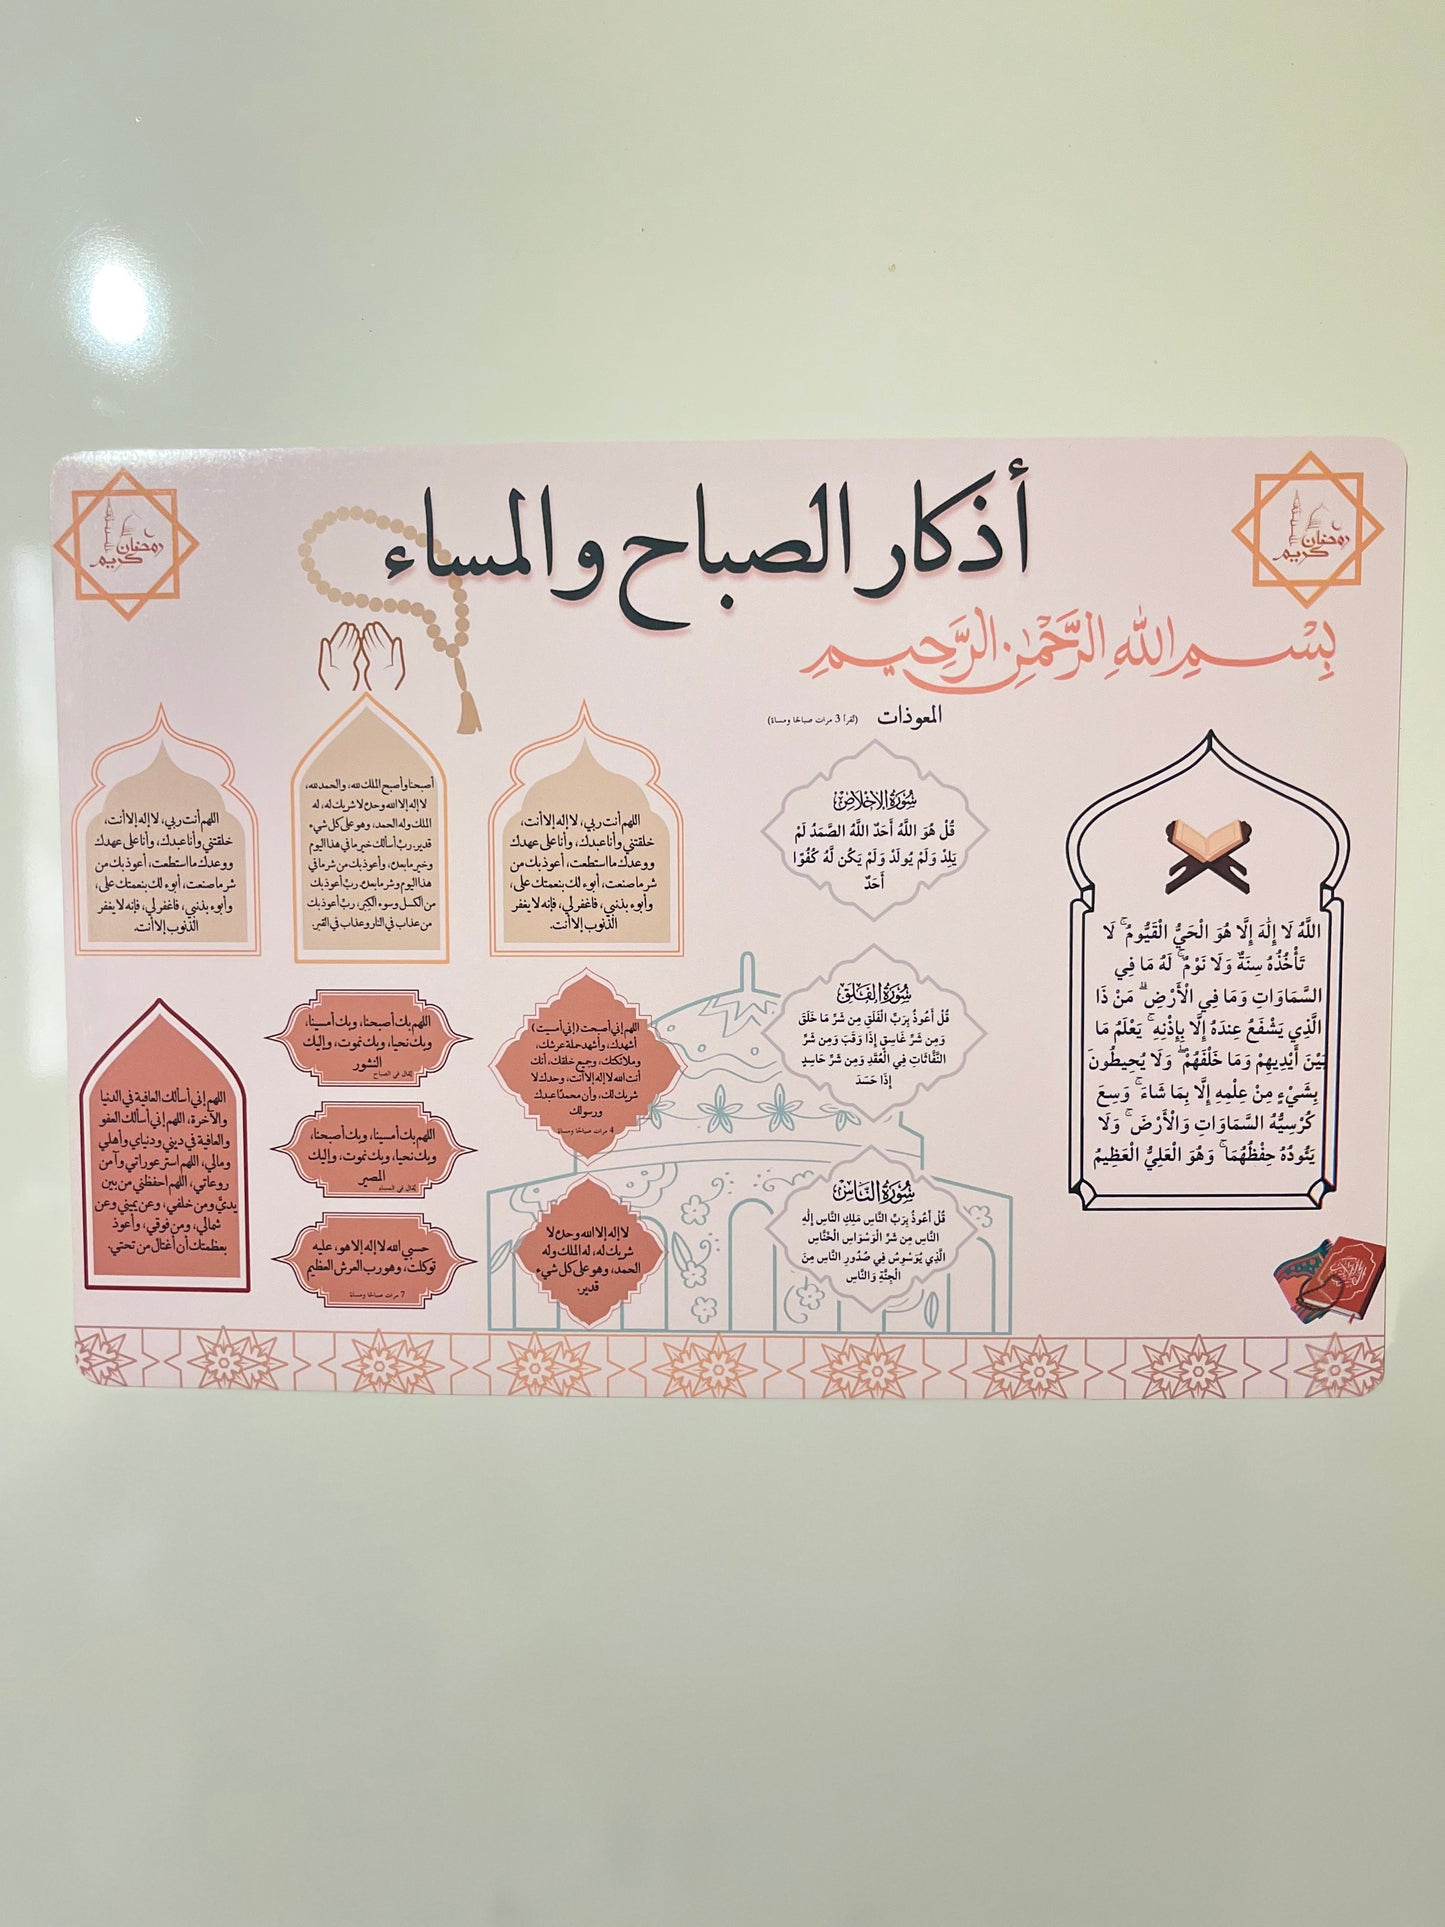 أذكار الصباح والمساء
رمضان
كريم
رمضان
كريم
بِسْمِ اللهِ الرَّحْمٰنِ الرَّحِيمِ
اللَّهُ لَا إِلَٰهَ إِلَّا هُوَ الْحَيُّ الْقَيُّومُ ۚ لَا
تَأْخُذُهُ سِنَةٌ وَلَا نَوْمٌ ۚ لَهُ مَا فِي
السَّمَاوَاتِ وَمَا فِي الْأَرْضِ ۗ مَنْ ذَا
الَّذِي يَشْفَعُ عِنْدَهُ إِلَّا بِإِذْنِهِ ۚ يَعْلَمُ مَا
بَيْنَ أَيْدِيهِمْ وَمَا خَلْفَهُمْ ۖ وَلَا يُحِيطُونَ
بِشَيْءٍ مِنْ عِلْمِهِ إِلَّا بِمَا شَاءَ ۚ وَسِعَ
كُرْسِيُّهُ السَّمَاوَاتِ وَالْأَرْضَ ۖ وَلَا
يَئُودُهُ حِفْظُهُمَا ۚ وَهُوَ الْعَلِيُّ الْعَظِيمُ
المعوذات (تُقرأ 3 مرات صباحًا ومساءً)
سُورَةُ الإِخْلَاصِ
قُلْ هُوَ اللَّهُ أَحَدٌ اللَّهُ الصَّمَدُ لَمْ
يَلِدْ وَلَمْ يُولَدْ وَلَمْ يَكُن لَّهُ كُفُوًا
أَحَدٌ
سُورَةُ الفَلَقِ
قُلْ أَعُوذُ بِرَبِّ الْفَلَقِ مِن شَرِّ مَا خَلَقَ
وَمِن شَرِّ غَاسِقٍ إِذَا وَقَبَ وَمِن شَرِّ
النَّفَّاثَاتِ فِي الْعُقَدِ وَمِن شَرِّ حَاسِدٍ
إِذَا حَسَدَ
سُورَةُ النَّاسِ
قُلْ أَعُوذُ بِرَبِّ النَّاسِ مَلِكِ النَّاسِ إِلَٰهِ
النَّاسِ مِن شَرِّ الْوَسْوَاسِ الْخَنَّاسِ
الَّذِي يُوَسْوِسُ فِي صُدُورِ النَّاسِ مِنَ
الْجِنَّةِ وَالنَّاسِ
اللهم أنت ربي، لا إله إلا أنت،
خلقتني وأنا عبدك، وأنا على عهدك
ووعدك ما استطعت، أعوذ بك من
شر ما صنعت، أبوء لك بنعمتك علي،
وأبوء بذنبي، فاغفر لي، فإنه لا يغفر
الذنوب إلا أنت.
أصبحنا وأصبح الملك لله، والحمد لله،
لا إله إلا الله وحده لا شريك له، له
الملك وله الحمد، وهو على كل شيء
قدير. ربّ أسألك خير ما في هذا اليوم
وخير ما بعده، وأعوذ بك من شر ما في
هذا اليوم وشر ما بعده. ربّ أعوذ بك
من الكسل وسوء الكبر، ربّ أعوذ بك
من عذاب في النار وعذاب في القبر.
اللهم أنت ربي، لا إله إلا أنت،
خلقتني وأنا عبدك، وأنا على عهدك
ووعدك ما استطعت، أعوذ بك من
شر ما صنعت، أبوء لك بنعمتك علي،
وأبوء بذنبي، فاغفر لي، فإنه لا يغفر
الذنوب إلا أنت.
اللهم إني أصبحت (إني أمسيت)
أشهدك، وأشهد حملة عرشك،
وملائكتك، وجميع خلقك، أنك
أنت الله لا إله إلا أنت، وحدك لا
شريك لك، وأن محمدًا عبدك
ورسولك
4 مرات صباحًا ومساءً
لا إله إلا الله وحده لا
شريك له، له الملك وله
الحمد، وهو على كل شيء
قدير.
اللهم بك أصبحنا، وبك أمسينا،
وبك نحيا، وبك نموت، وإليك
النشور
يُقال في الصباح
اللهم بك أمسينا، وبك أصبحنا،
وبك نحيا، وبك نموت، وإليك
المصير
يُقال في المساء
حسبي الله لا إله إلا هو، عليه
توكلت، وهو رب العرش العظيم
7 مرات صباحًا ومساءً
اللهم إني أسألك العافية في الدنيا
والآخرة، اللهم إني أسألك العفو
والعافية في ديني ودنياي وأهلي
ومالي، اللهم استر عوراتي وآمن
روعاتي، اللهم احفظني من بين
يديَّ ومن خلفي، وعن يميني وعن
شمالي، ومن فوقي، وأعوذ
بعظمتك أن أغتال من تحتي.